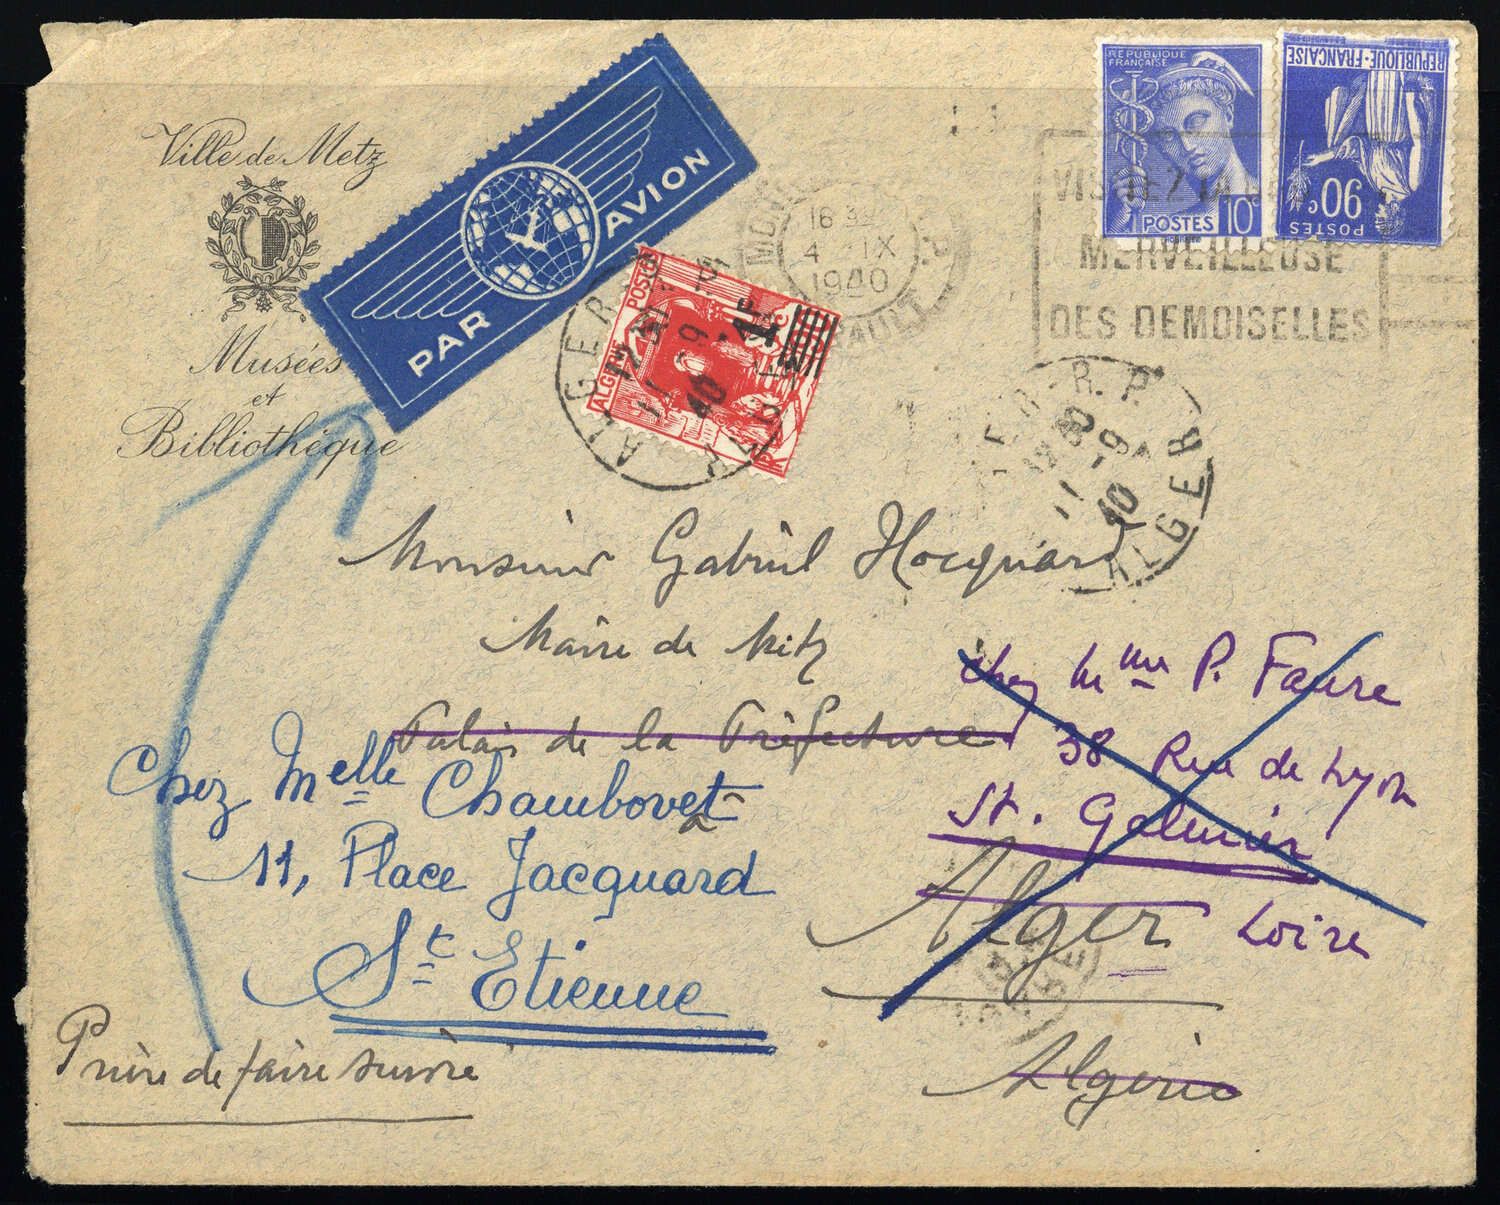 Ville de Metz
Musées
et
Bibliothèque
PAR AVION
REPUBLIQUE
FRANÇAISE
POSTES 10c
REPUBLIQUE-FRANÇAISE
90c
POSTES
16 30
4 - IX
1940
VISITEZ LA
MERVEILLEUSE
DES DEMOISELLES
ALGERIE POSTES
1F
ALGER R.P.
12 30
11 -9
40
ALGER
R.P.
12 30
11 -9
40
ALGER
Monsieur Gabriel Hocquard
Maire de Metz
Palais de la Préfecture
à
Alger
Algérie
chez Mme P. Faure
38 Rue de Lyon
St. Galmier
Loire
Chez Melle Chambovet
11, Place Jacquard
St Etienne
Prière de faire suivre